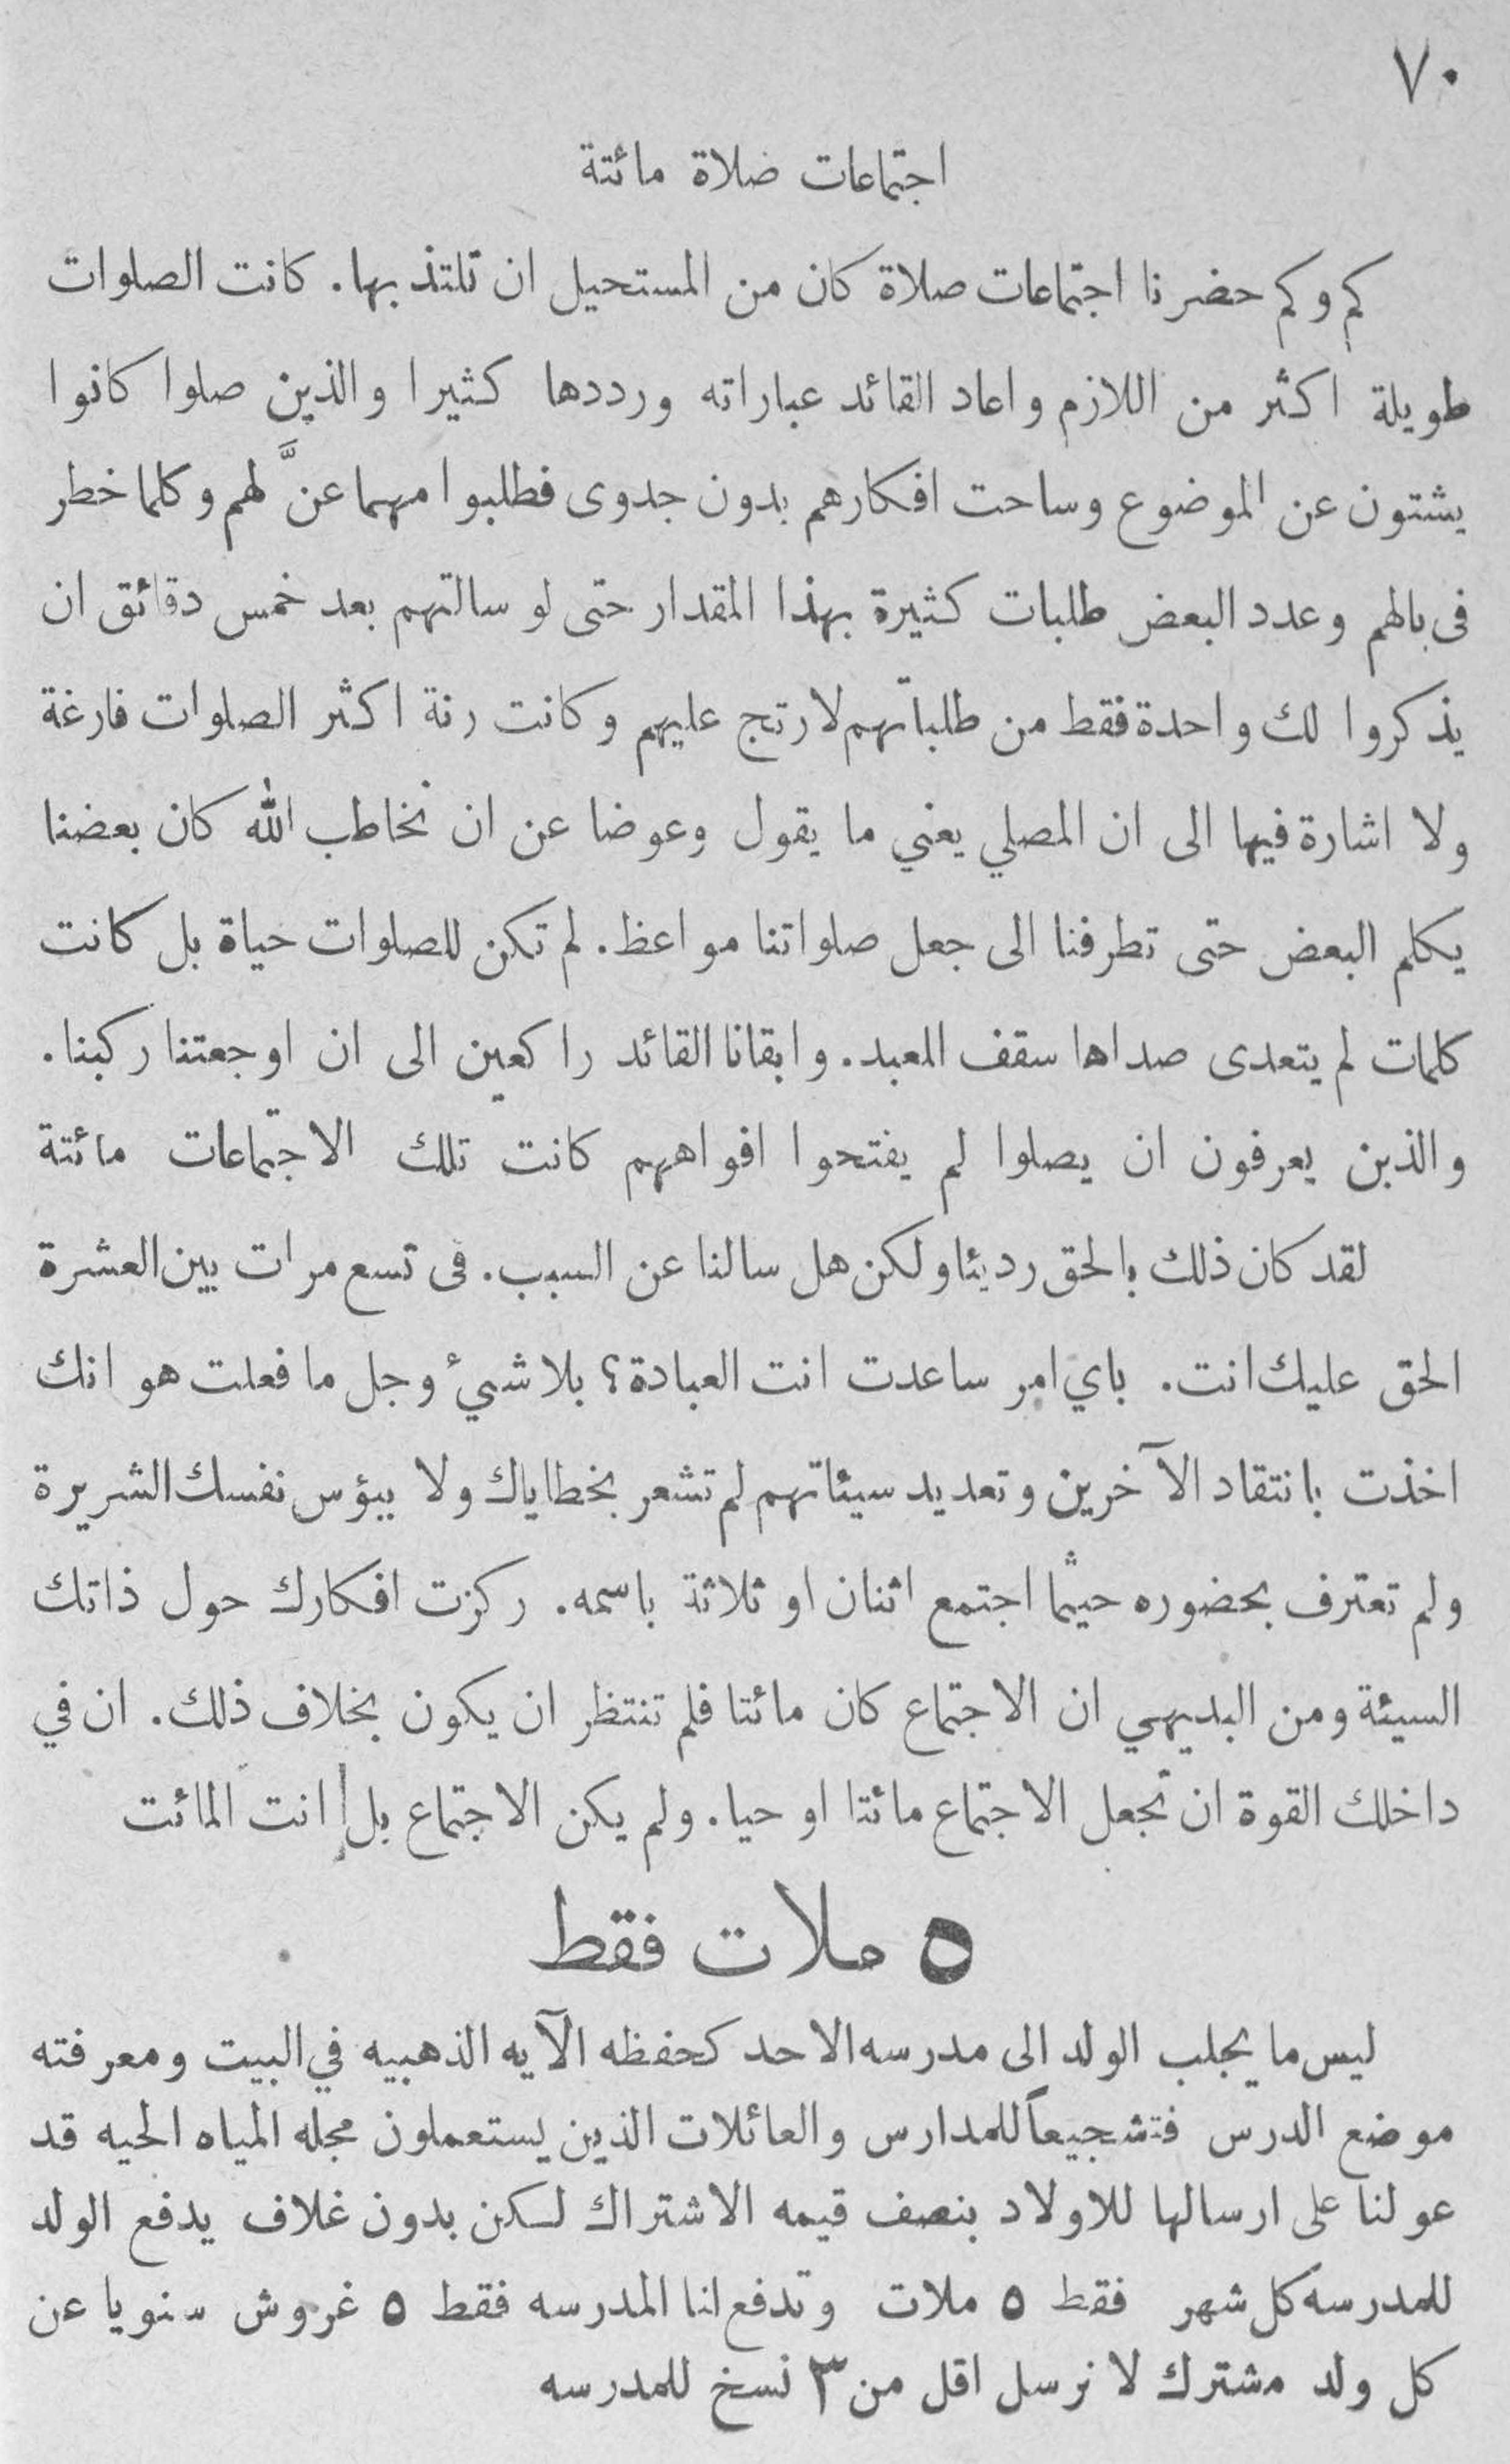 ٧٠
اجتماعات ضلاة مائتة
كم وكم حضرنا اجتماعات صلاة كان من المستحيل ان تلتذ بها. كانت الصلوات
طويلة اكثر من اللازم واعاد القائد عباراته ورددها كثيرا والذين صلوا كانوا
يشتتون عن الموضوع وساحت افكارهم بدون جدوى فطلبوا مهما عنَّ لهم وكلما خطر
فى بالهم وعدد البعض طلبات كثيرة بهذا المقدار حتى لو سالتهم بعد خمس دقائق ان
يذكروا لك واحدة فقط من طلباتهم لارتج عليهم وكانت رنة اكثر الصلوات فارغة
ولا اشارة فيها الى ان المصلي يعني ما يقول وعوضا عن ان نخاطب الله كان بعضنا
يكلم البعض حتى تطرفنا الى جعل صلواتنا مواعظ. لم تكن للصلوات حياة بل كانت
كلمات لم يتعدى صداها سقف المعبد. وابقانا القائد راكعين الى ان اوجعتنا ركبنا.
والذين يعرفون ان يصلوا لم يفتحوا افواههم كانت تلك الاجتماعات مائتة
لقد كان ذلك بالحق رديئا ولكن هل سالنا عن السبب. فى تسع مرات بين العشرة
الحق عليك انت. باي امر ساعدت انت العبادة؟ بلا شيء وجل ما فعلت هو انك
اخذت بانتقاد الآخرين وتعديد سيئاتهم لم تشعر بخطاياك ولا ببؤس نفسك الشريرة
ولم تعترف بحضوره حيثما اجتمع اثنان او ثلاثة باسمه. ركزت افكارك حول ذاتك
السيئة ومن البديهي ان الاجتماع كان مائتا فلم تنتظر ان يكون بخلاف ذلك. ان في
داخلك القوة ان تجعل الاجتماع مائتا او حيا. ولم يكن الاجتماع بل انت المائت
٥ ملات فقط
ليس ما يجلب الولد الى مدرسه الاحد كحفظه الآيه الذهبيه في البيت ومعرفته
موضع الدرس فتشجيعاً للمدارس والعائلات الذين يستعملون مجله المياه الحيه قد
عولنا على ارسالها للاولاد بنصف قيمه الاشتراك لكن بدون غلاف يدفع الولد
للمدرسه كل شهر فقط ٥ ملات وتدفع لنا المدرسه فقط ٥ غروش سنويا عن
كل ولد مشترك لا نرسل اقل من ٣ نسخ للمدرسه